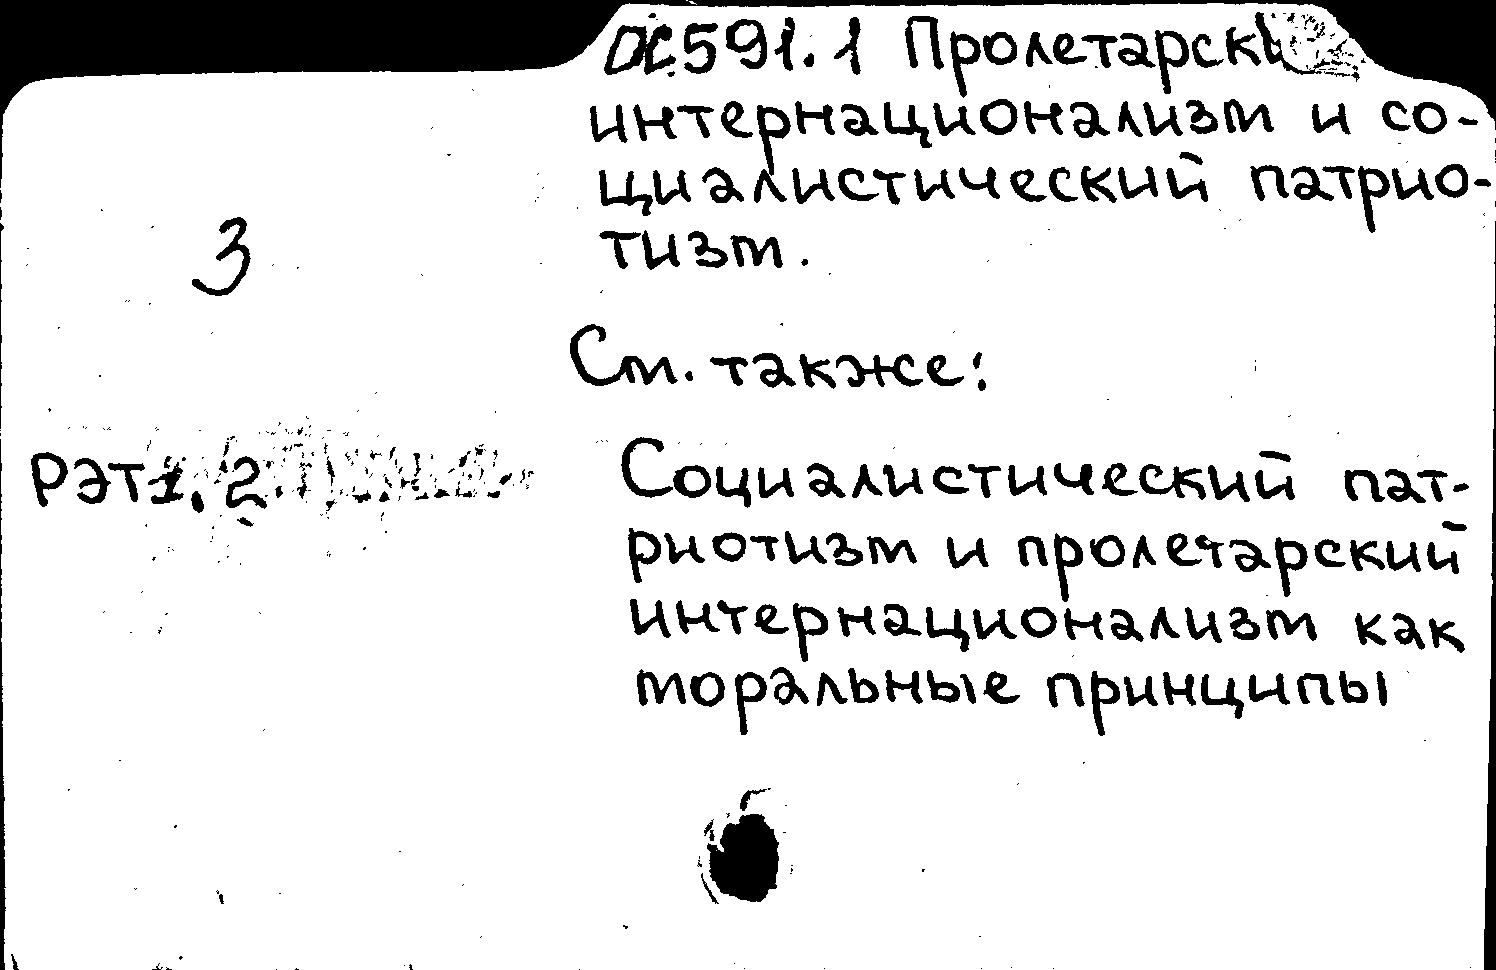 ОС591.1 Пролетарски
интернационализм и со-
циалистический патрио-
тизм.
3
См. также:
РЭТ1.2 Социалистический пат-
риотизм и пролетарский
интернационализм как
моральные принципы